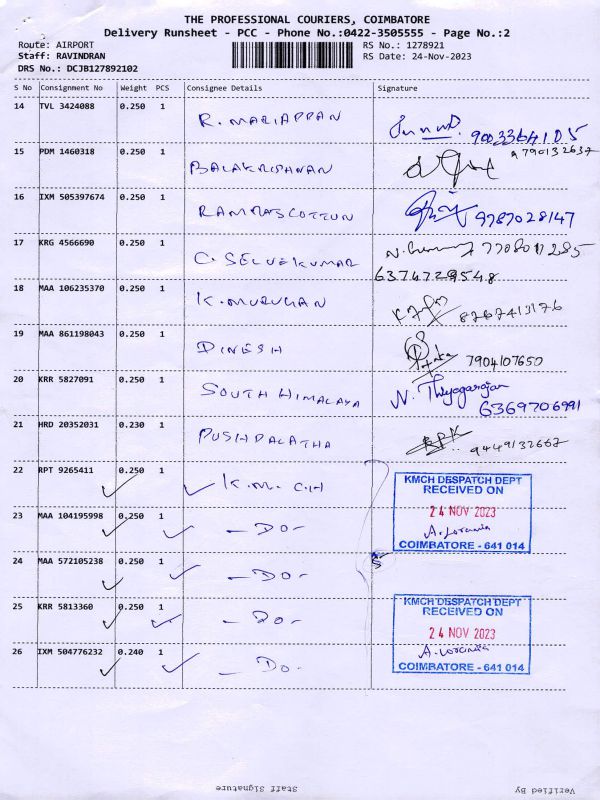 THE PROFESSIONAL COURIERS, COIMBATORE
Delivery Runsheet - PCC - Phone No.:0422-3505555 - Page No.:2
Route: AIRPORT RS No.: 1278921
Staff: RAVINDRAN RS Date: 24-Nov-2023
DRS No.: DCJB127892102
S No Consignment No Weight PCS Consignee Details Signature
14 TVL 3424088 0.250 1 R. MARIAPPAN 9003364105
15 PDM 1460318 0.250 1 BALAKRISHNAN 9790132637
16 IXM 505397674 0.250 1 RAMDAS COTTON 9787028147
17 KRG 4566690 0.250 1 C. SELVAKUMAR
6374729548
18 MAA 106235370 0.250 1 K. MURUGAN 8767413176
19 MAA 861198043 0.250 1 DINESH 7904107650
20 KRR 5827091 0.250 1 SOUTH HIMALAYA N. Thiyagarajan
6369706991
21 HRD 20352031 0.230 1 PUSHPALATHA RPK 9449132667
22 RPT 9265411 0.250 1 K.M.C.H KMCH DESPATCH DEPT
RECEIVED ON
23 MAA 104195998 0.250 1 - DO - 24 NOV 2023
COIMBATORE - 641 014
24 MAA 572105238 0.250 1 - DO - 5
25 KRR 5813360 0.250 1 - DO - KMCH DESPATCH DEPT
RECEIVED ON
24 NOV 2023
26 IXM 504776232 0.240 1 - DO - COIMBATORE - 641 014
Staff Signature Verified By